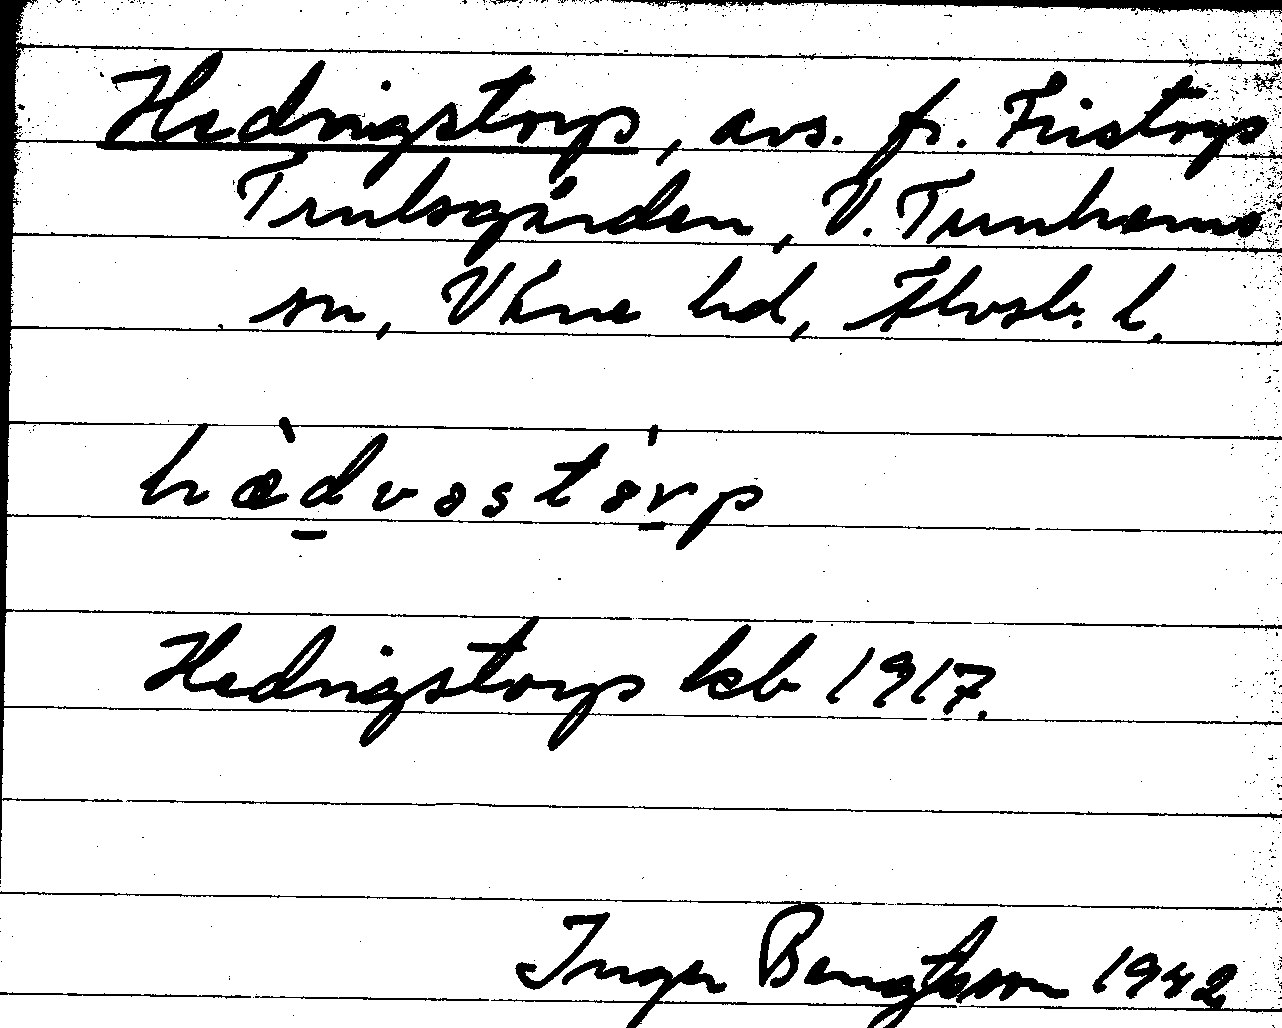 Hedvigstorp, avs. fr. Fristorp
Trulsgården, V. Tunhems
sn, Väne hd, Älvsb. l.
hæ̀d̲vostór̲p
Hedvigstorp kb 1917.
Inger Bengtsson 1942